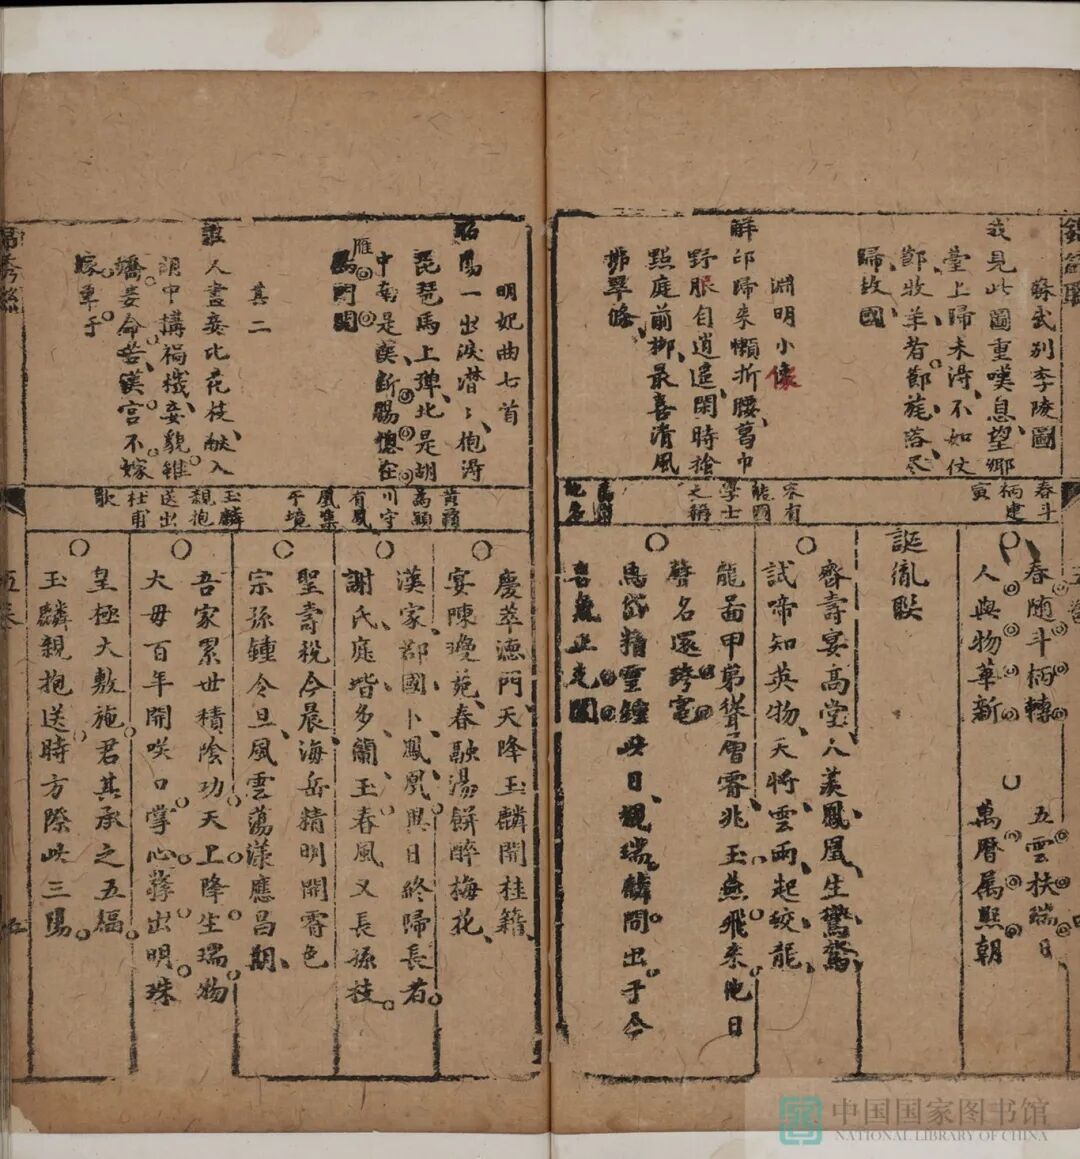 蘇武别李陵圖
我見此圖重嘆息望鄉
臺上歸未得不如仗
節牧羊者節旄落尽
歸故國
淵明小像
解印歸来懶折腰葛巾
野服自逍遥閑時撿
點庭前柳最喜清風
拂翠條
春斗
柄建
寅
宋有
龍圖
學士
之稱
地名
春随斗柄轉 五雲扶端日
人與物華新 萬曆萬熙朝
誕胤联
齊壽宴高堂人羡鳳凰生鸑鷟
試啼知英物天将雲雨起蛟龍
龍啚甲第聳層霄兆玉燕飛来他日
聲名還跨竈
馬岱精靈鍾此日覩瑞麟問出于今
正充閭
明妃曲七首
昭陽一出淚潸〻抱淂
琵琶馬上弹北是胡
中南是漢斷腸怱在
雁門關
其二
誰人畫妾比花枝献入
胡中搆禍機妾貌雖
嬌妾命苦漢宫不嫁
嫁單于
黄霸
為潁
川守
有鳳
凰集
于境
玉麟
親抱
送出
杜甫
歌
慶萃德門天降玉麟開桂籍
宴陳瓊苑春融湯餅醉梅花
漢家郡國卜鳳凰異日終歸長者
謝氏庭堦多蘭玉春風又長孫枝
聖壽祝今晨海岳精明開霽色
宗孫鍾令旦風雲蕩漾應昌期
吾家累世積陰功天上降生瑞物
大毋百年開咲口掌心莾出明珠
皇極大敷施君其承之五福
玉麟親抱送時方際此三陽
中国国家图书馆
NATIONAL LIBRARY OF CHINA